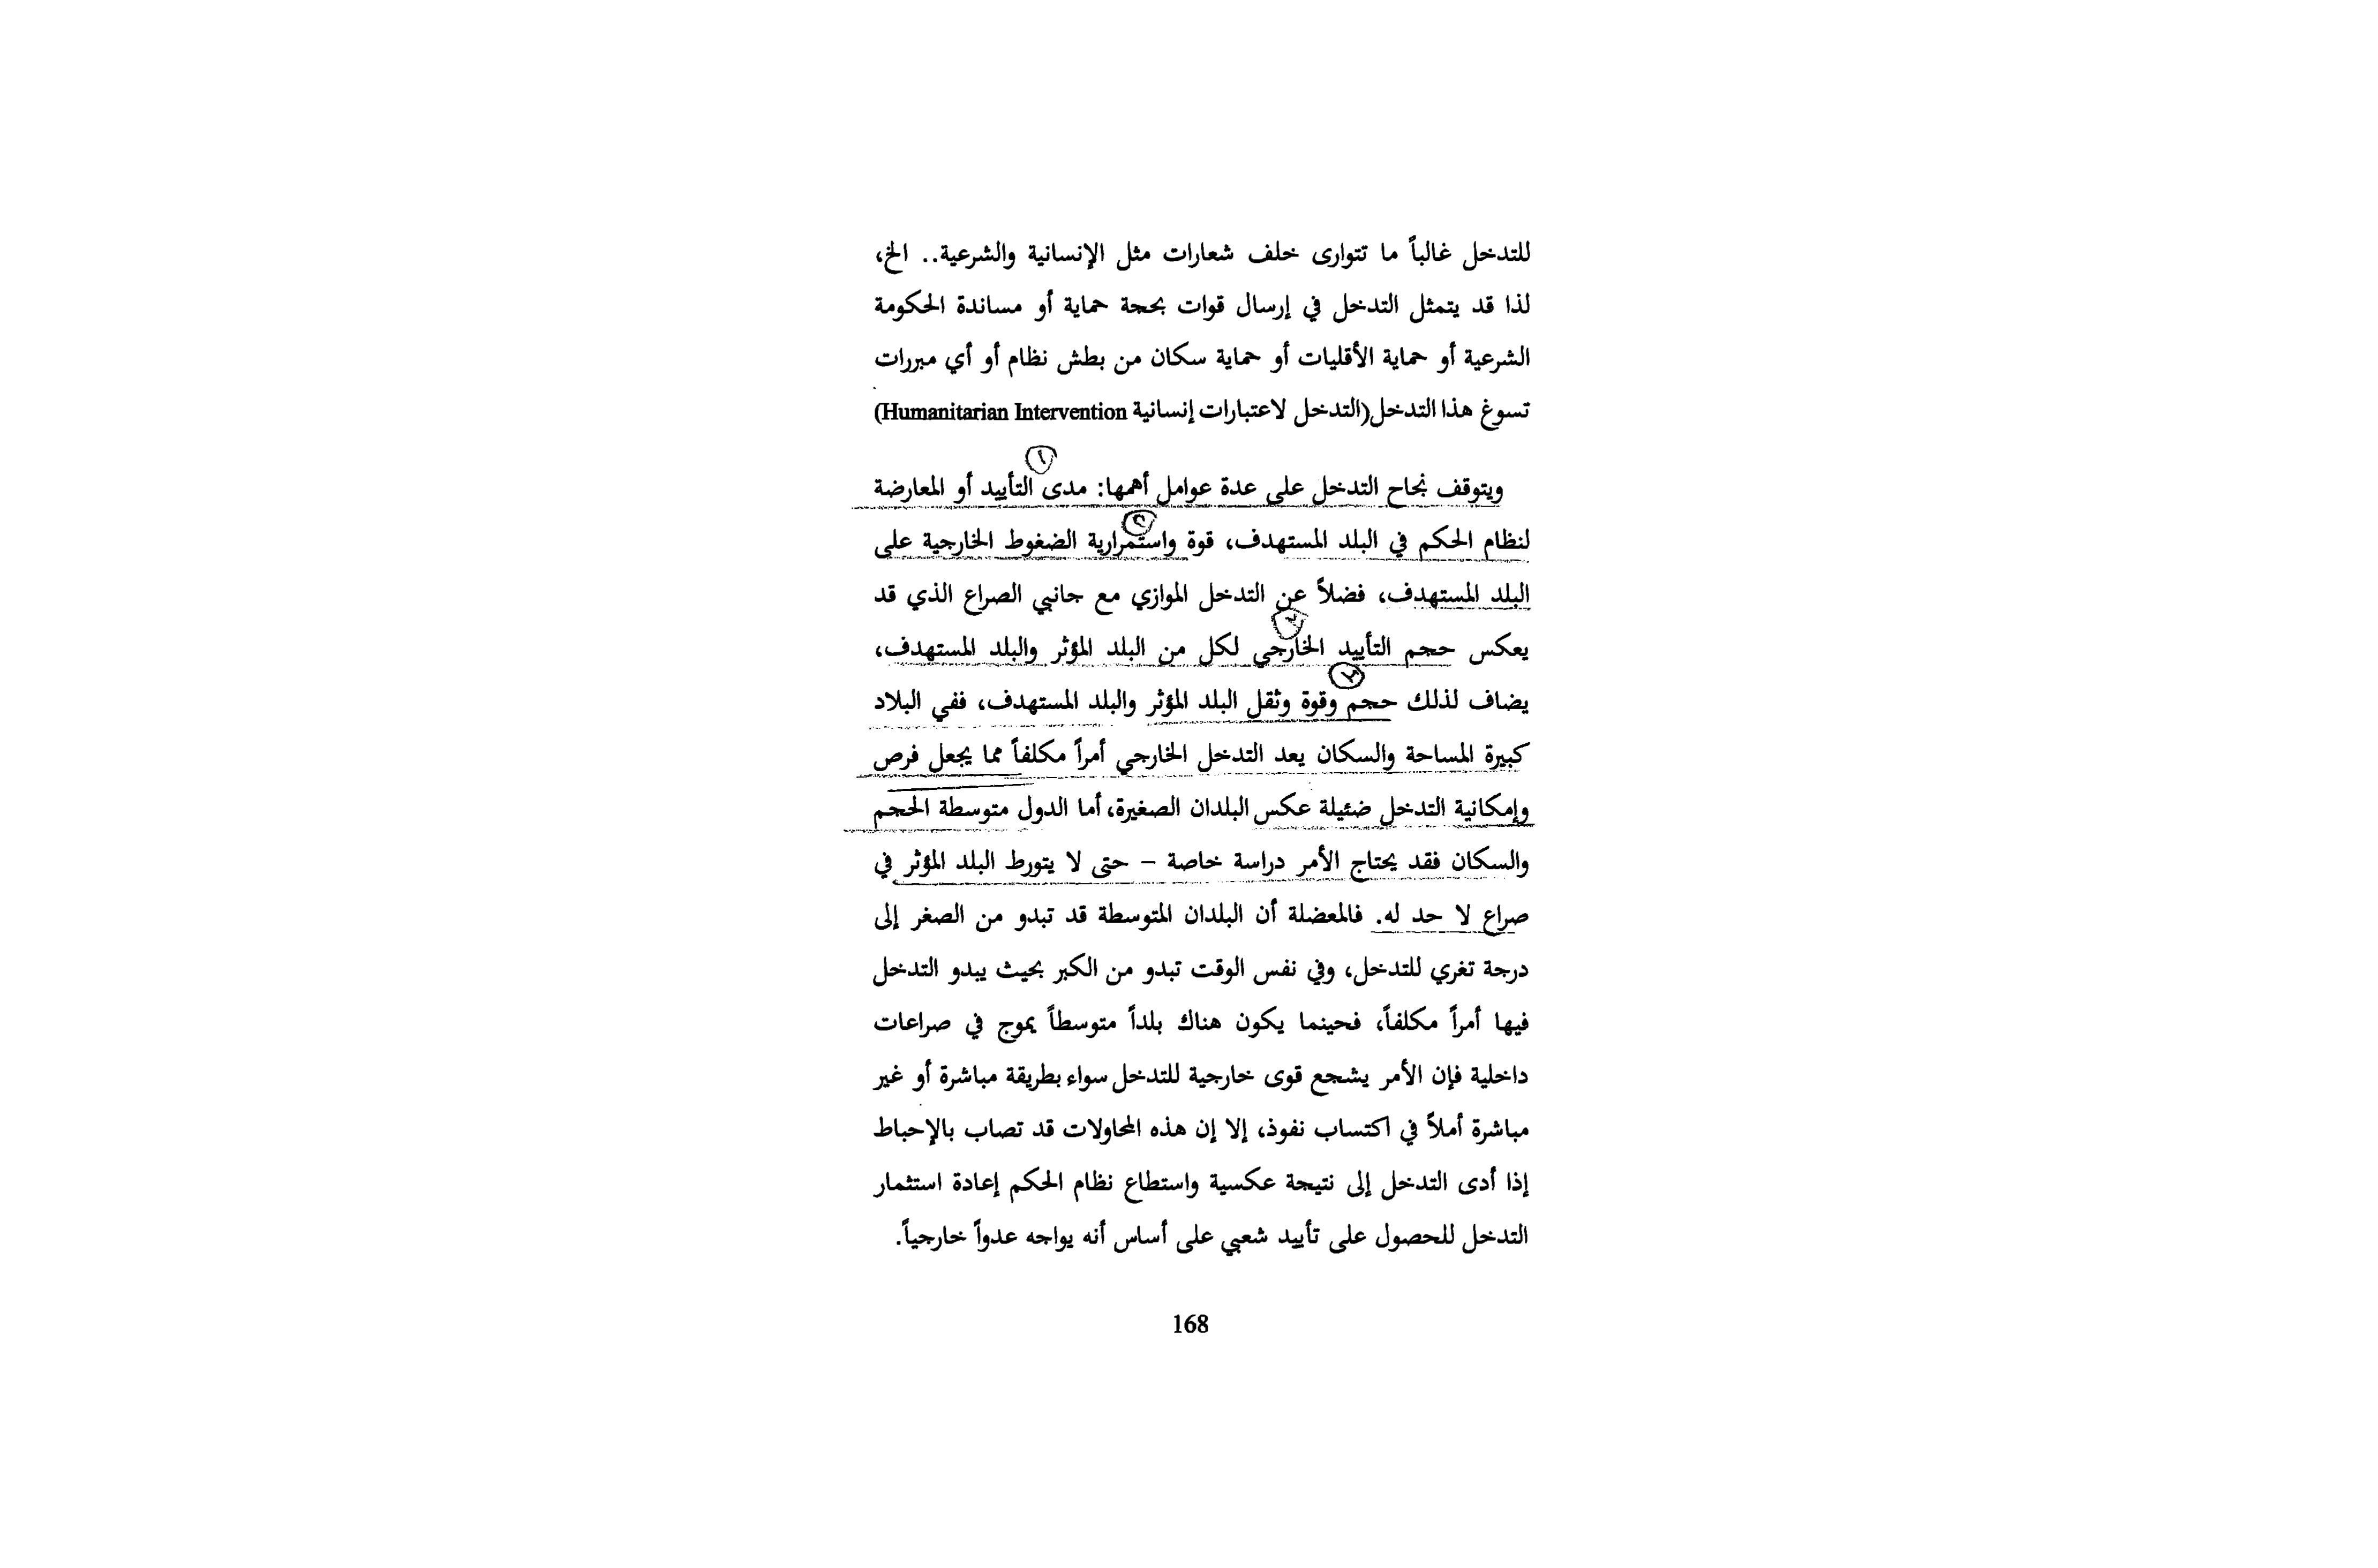 للتدخل غالباً ما تتوارى خلف شعارات مثل الإنسانية والشرعية.. الخ،
لذا قد يتمثل التدخل في إرسال قوات بحجة حماية أو مساندة الحكومة
الشرعية أو حماية الأقليات أو حماية سكان من بطش نظام أو أي مبررات
تسوغ هذا التدخل(التدخل لاعتبارات إنسانية Humanitarian Intervention)
١
ويتوقف نجاح التدخل على عدة عوامل أهمها: مدى التأييد أو المعارضة
٢
لنظام الحكم في البلد المستهدف، قوة واستمرارية الضغوط الخارجية على
البلد المستهدف، فضلاً عن التدخل الموازي مع جانبي الصراع الذي قد
يعكس حجم التأييد الخارجي لكل من البلد المؤثر والبلد المستهدف،
يضاف لذلك حجم وقوة وثقل البلد المؤثر والبلد المستهدف، ففي البلاد
كبيرة المساحة والسكان يعد التدخل الخارجي أمراً مكلفاً مما يجعل فرص
وإمكانية التدخل ضئيلة عكس البلدان الصغيرة، أما الدول متوسطة الحجم
والسكان فقد يحتاج الأمر دراسة خاصة – حتى لا يتورط البلد المؤثر في
صراع لا حد له. فالمعضلة أن البلدان المتوسطة قد تبدو من الصغر إلى
درجة تغري للتدخل، وفي نفس الوقت تبدو من الكبر بحيث يبدو التدخل
فيها أمراً مكلفاً، فحينما يكون هناك بلداً متوسطاً يموج في صراعات
داخلية فإن الأمر يشجع قوى خارجية للتدخل سواء بطريقة مباشرة أو غير
مباشرة أملاً في اكتساب نفوذ، إلا إن هذه المحاولات قد تصاب بالإحباط
إذا أدى التدخل إلى نتيجة عكسية واستطاع نظام الحكم إعادة استثمار
التدخل للحصول على تأييد شعبي على أساس أنه يواجه عدواً خارجياً.
168